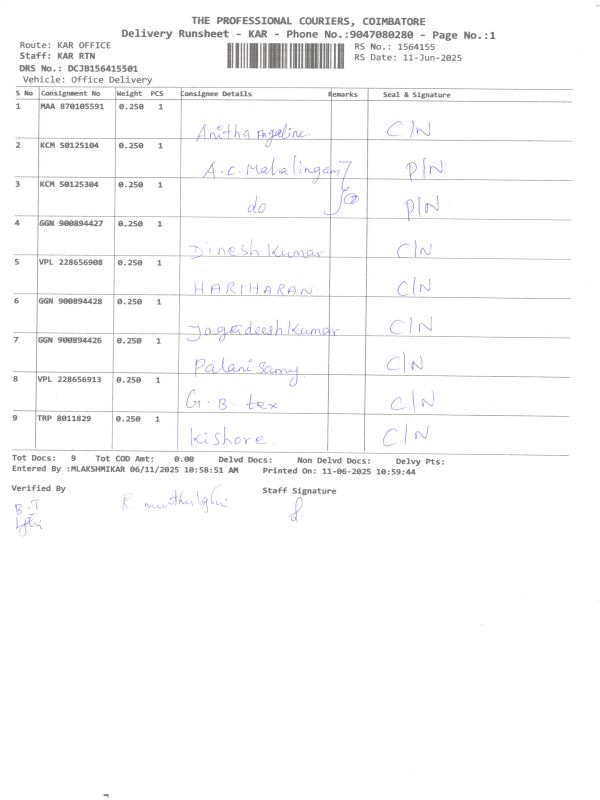 THE PROFESSIONAL COURIERS, COIMBATORE
Delivery Runsheet - KAR - Phone No.:9047080280 - Page No.:1
Route: KAR OFFICE RS No.: 1564155
Staff: KAR RTN RS Date: 11-Jun-2025
DRS No.: DCJB156415501
Vehicle: Office Delivery
S No Consignment No Weight PCS Consignee Details Remarks Seal & Signature
1 MAA 870105591 0.250 1
Anitha Angeline. C/N
2 KCM 50125104 0.250 1
A.C. Mahalingam P/N
3 KCM 50125304 0.250 1
do P/N
4 GGN 900894427 0.250 1
Dinesh Kumar C/N
5 VPL 228656908 0.250 1
HARIHARAN. C/N
6 GGN 900894428 0.250 1
Jagadeesh Kumar C/N
7 GGN 900894426 0.250 1
Palani Samy. C/N
8 VPL 228656913 0.250 1
G. B. tex C/N
9 TRP 8011829 0.250 1
Kishore. C/N
Tot Docs: 9 Tot COD Amt: 0.00 Delvd Docs: Non Delvd Docs: Delvy Pts:
Entered By :MLAKSHMIKAR 06/11/2025 10:58:51 AM Printed On: 11-06-2025 10:59:44
Verified By Staff Signature